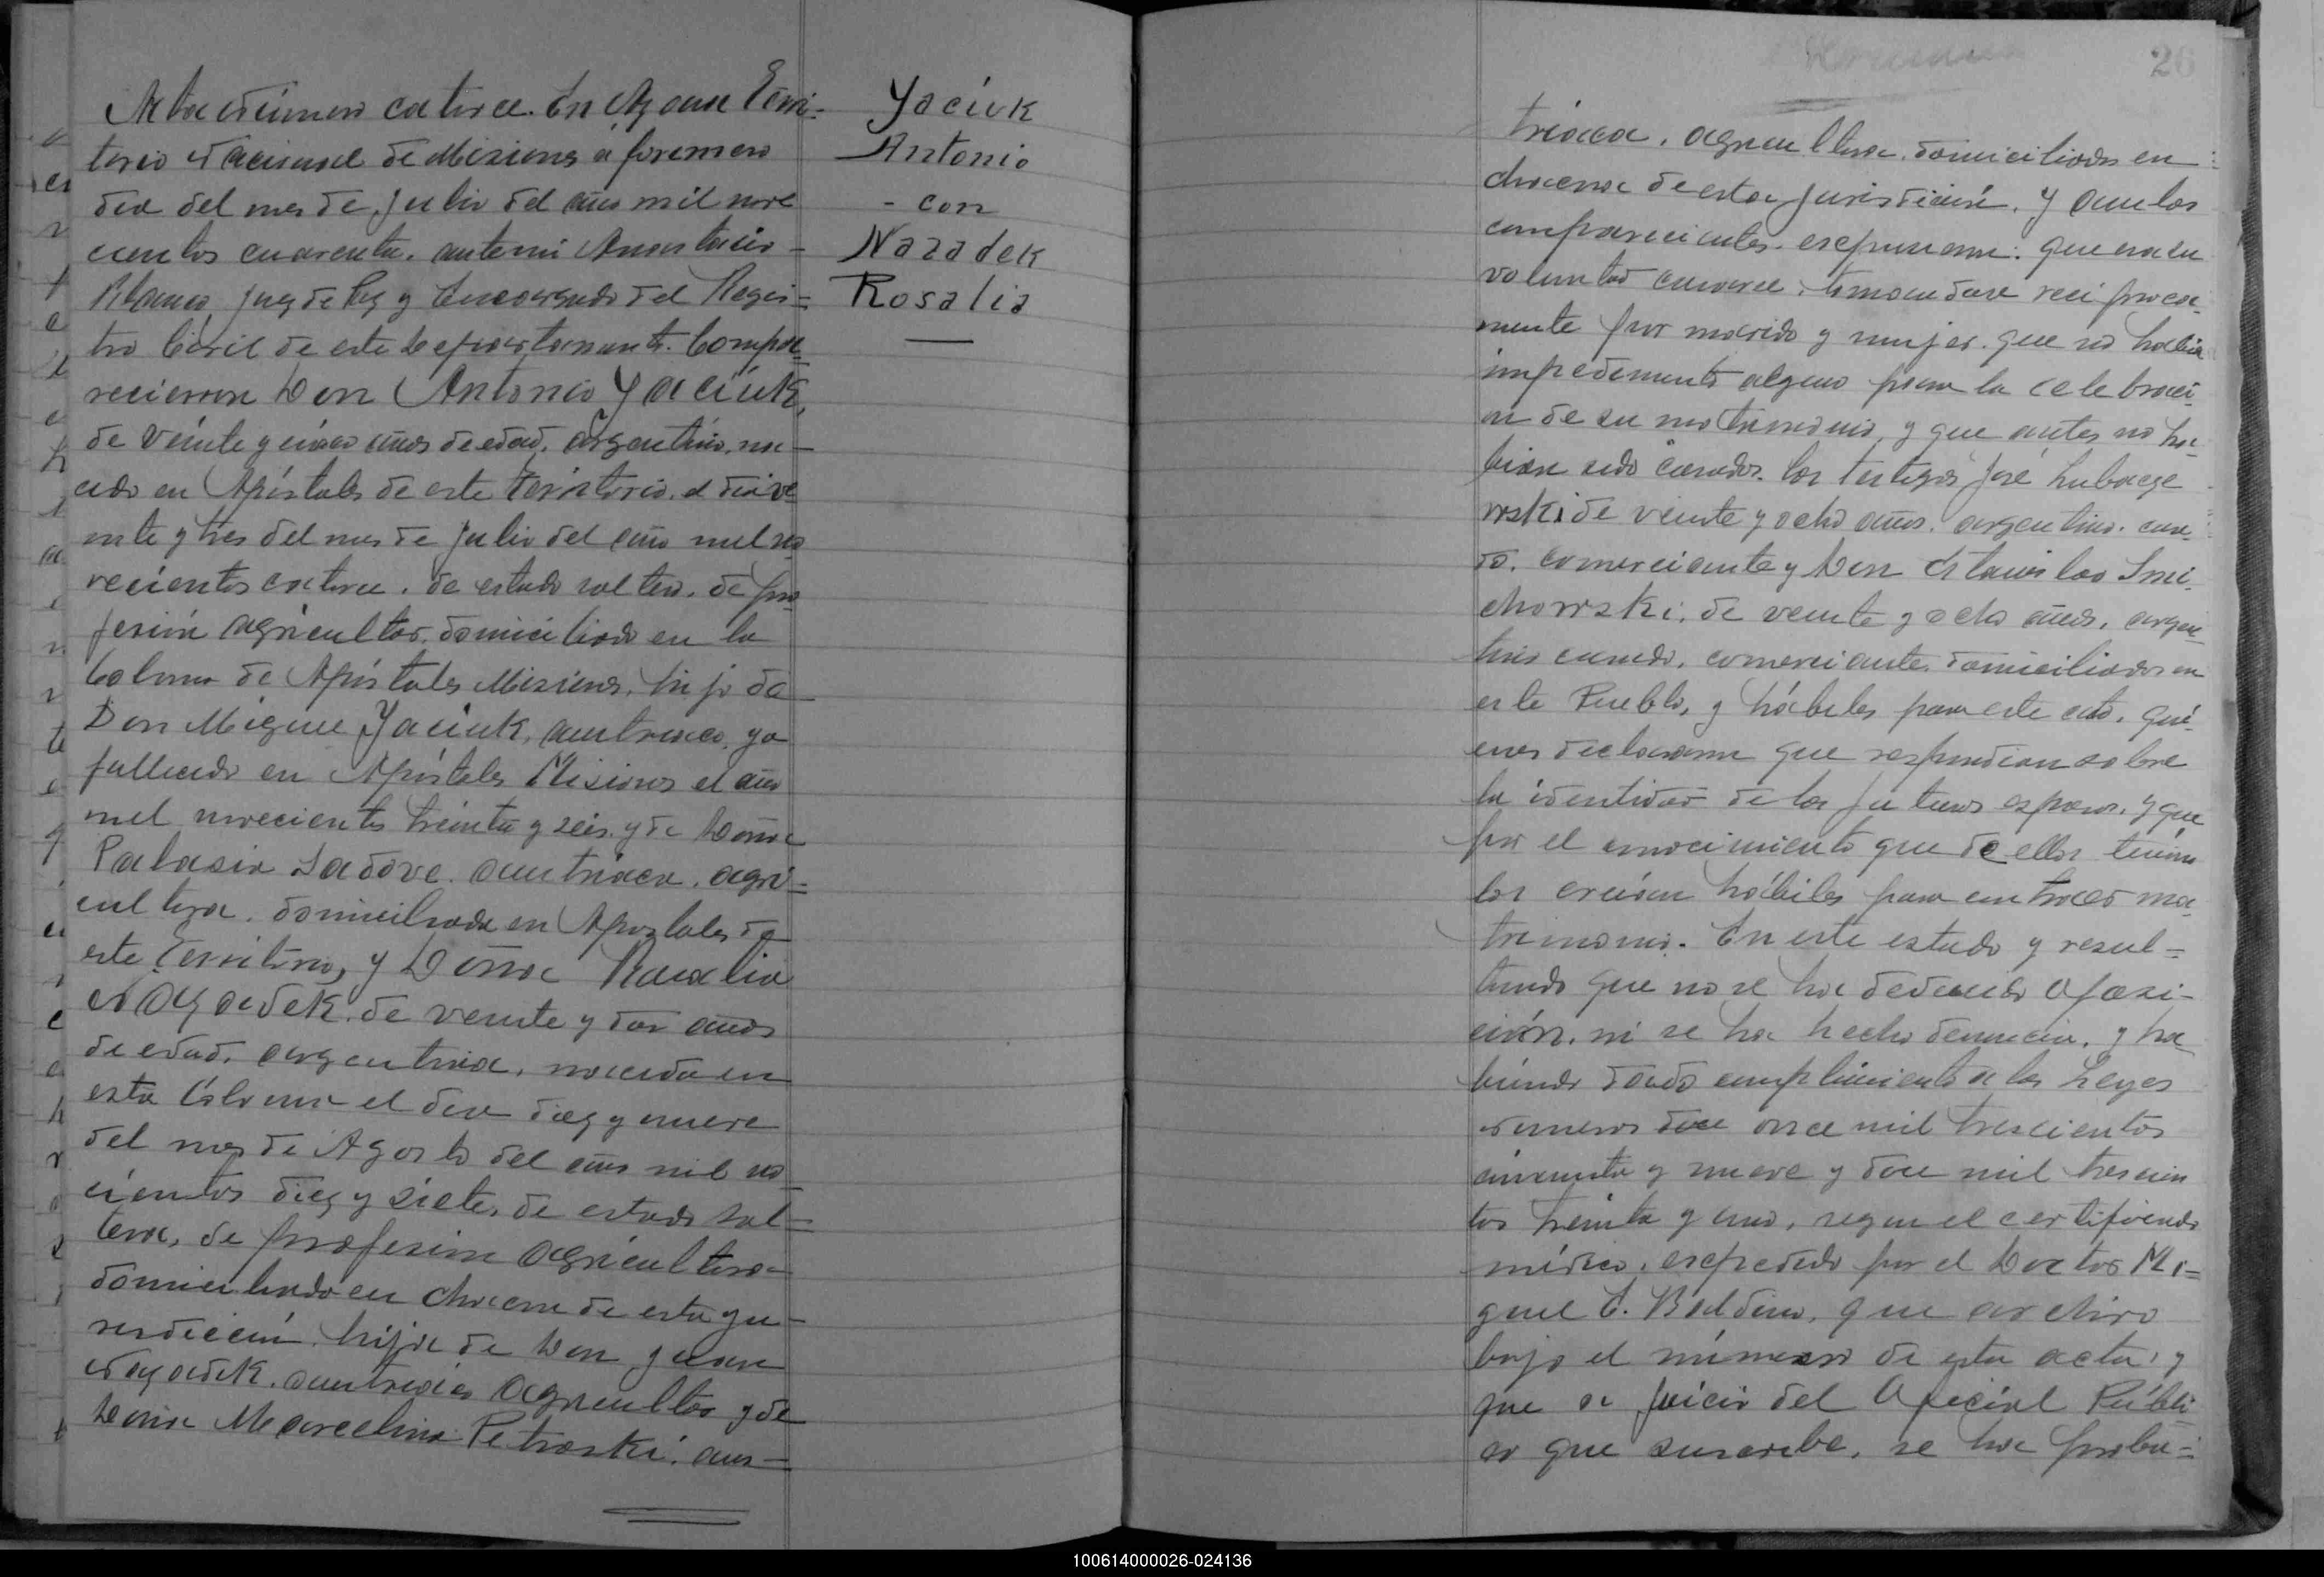 Acta número catorce. En Azara Terri-
torio Nacional de Misiones á primero
dia del mes de Julio del año mil nove
cientos cuarenta. ante mi Anastacio
Blanco, Juez de Paz y Encargado del Regis=
tro Civil de este Departamento. Compa=
recieron Don Antonio Yaciuk,
de veinte y cinco años de edad, argentino, na-
cido en Apóstoles de este Territorio. el dia ve
inte y tres del mes de Julio del año mil no
vecientos catorce. de estado soltero. de pro
fesión agricultor. domiciliado en la
Colonia de Apóstoles Misiones, hijo de
Don Miguel Yaciuk, austriaco, ya
fallecido en Apóstoles Misiones el año
mil novecientos treinta y seis. y de Doña
Palasia Sadove. austriaca. agri=
cultora. domiciliada en Apostoles de
este Territorio, y Doña Rosalia
Nazadek. de veinte y dos años
de edad. argentina, nacida en
esta Colonia el dia diez y nueve
del mes de Agosto del año mil no
cientos diez y siete, de estado sol=
tera, de profesion agricultora
domiciliada en chacra de esta ju-
risdicción, hija de Don Juan
Nazadek. austriaco agricultor y de
Doña Marcelina Petroski. aus=
Yaciuk
Antonio
- con
Nazadek
Rosalia
26
triaca. agricultora. domiciliados en
chacra de esta jurisdicción. Y ambos
comparecientes. expusieron: que era su
voluntad casarse, tomandose reciproca-
mente por marido y mujer. que no había
impedimento alguno para la celebraci-
on de su matrimonio, y que antes no ha-
bian sido casados. los testigos José Lubacze
wski de veinte y ocho años. argentino. casa-
do. comerciante y Don Estanislao Smi-
chowski, de veinte y ocho años, argen-
tino casado, comerciante. domiciliados en
este Pueblo, y hábiles para este acto, qui-
enes declararon que respondian sobre
la identidad de los futuros esposos. y que
por el conocimiento que de ellos tenian
los creían hábiles para contraer ma-
trimonio. En este estado y resul=
tando que no se ha deducido oposi-
ción. ni se ha hecho denuncia. y ha-
biendo dado cumplimiento a las Leyes
numeros doce once mil trescientos
cincuenta y nueve y doce mil trescien
tos treinta y uno, segun el certificado
médico, expedido por el Doctor Mi=
guel C. Baldino, que archivo
bajo el número de esta acta, y
que a juicio del Oficial Públi-
co que suscribe, se ha proba=
100614000026-024136